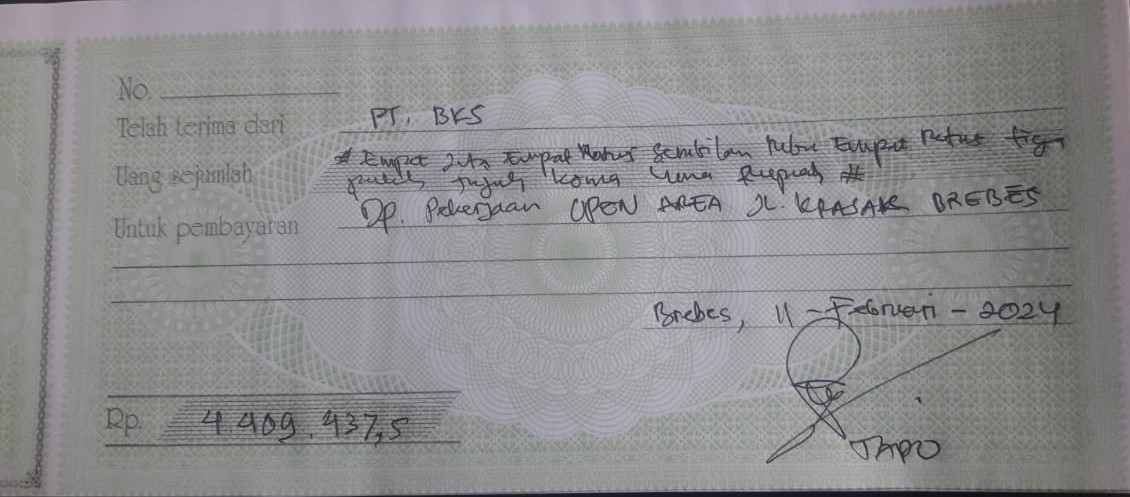 No.
Telah terima dari PT. BKS
Uang sejumlah # Empat Juta Empat Ratus Sembilan ribu Empat Ratus tiga
puluh tujuh koma lima Rupiah #
Untuk pembayaran Dp. Pekerjaan OPEN AREA JL. KRASAK BREBES
Brebes, 11 - Februari - 2024
Rp. 4 409.437,5
TAPO